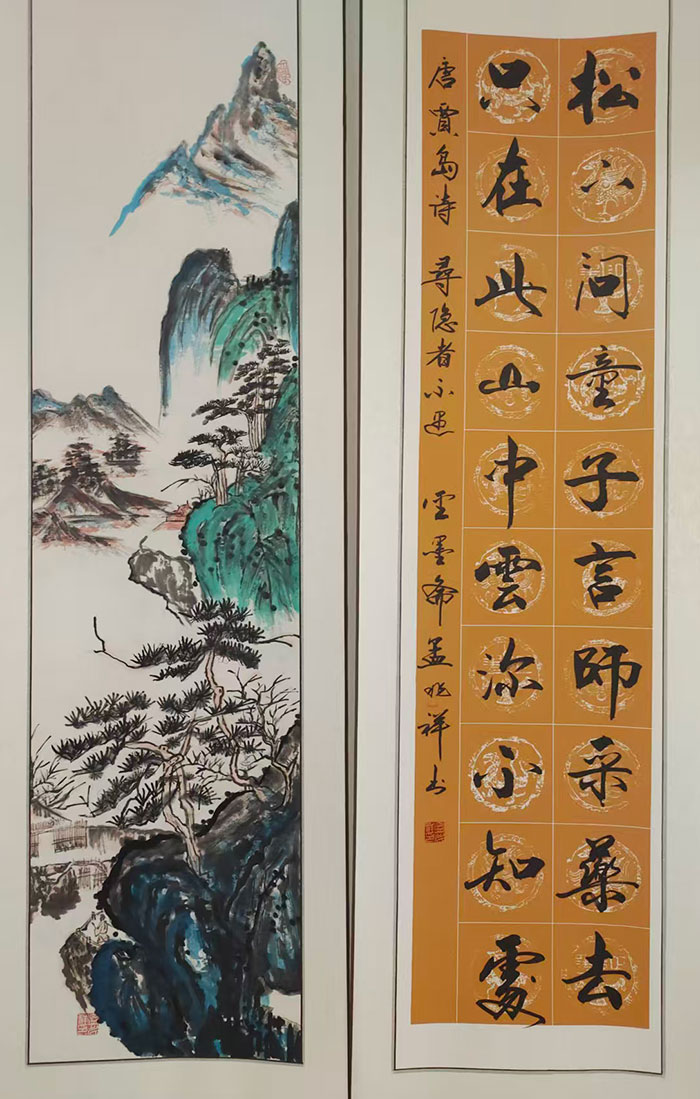 松下问童子言師采藥去
只在此山中雲深不知處
唐賈岛诗 尋隐者不遇 雲墨斋孟兆祥书